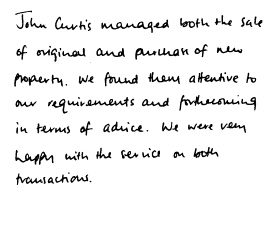 John Curtis managed both the sale
of original and purchase of new
property. We found them attentive to
our requirements and forthcoming
in terms of advice. We were very
happy with the service on both
transactions.